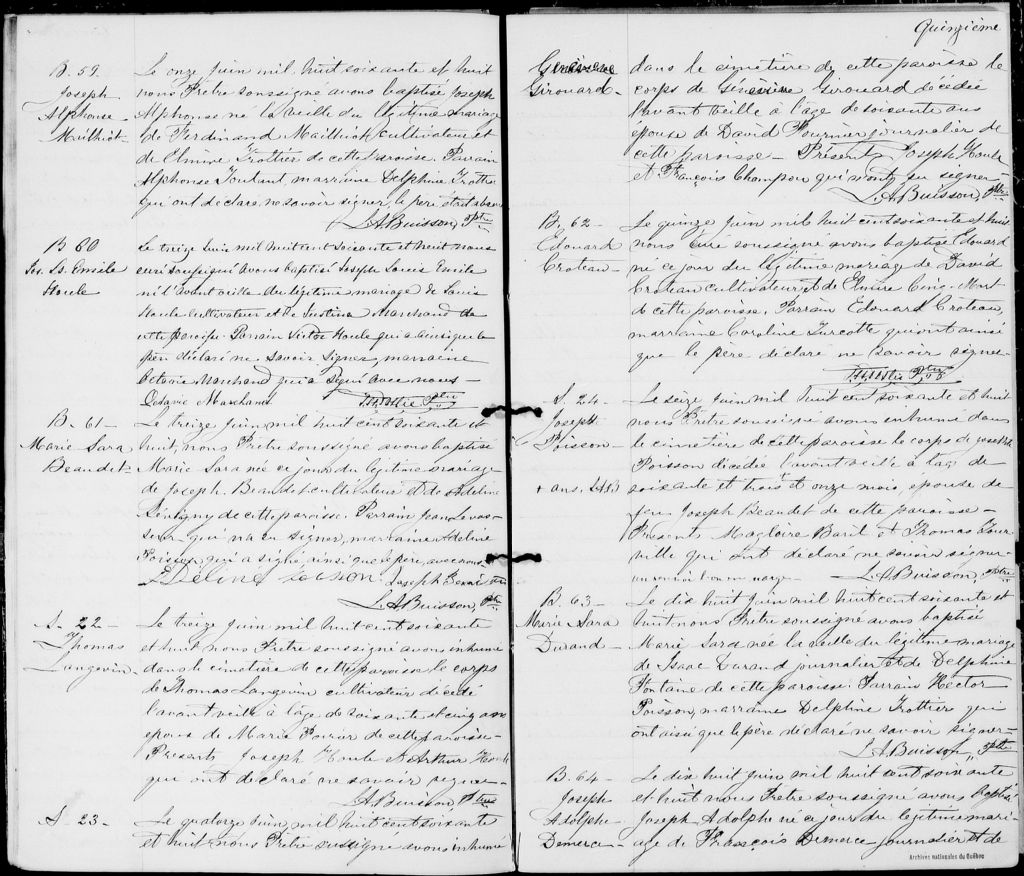 B. 59.
Joseph
Alphonse
Mailhiot
Le onze juin mil huit soixante et huit
nous Prêtre soussigné avons baptisé Joseph
Alphonse né la veille du légitime mariage
de Ferdinand Mailhiot cultivateur et
de Elmire Trottier de cette paroisse. Parrain
Alphonse Toutant, marraine Delphine Trottier
qui ont déclaré ne savoir signer, le père était absent
L. A. Buisson, Ptre
B 60
Jos. Ls. Emile
Houle
Le treize Juin mil huit cent soixante et huit nous
curé soussigné avons baptisé Joseph Louis Emile
né l'avant veille du légitime mariage de Louis
Houle cultivateur et de Justine Marchand de
cette paroisse Parrain Victor Houle qui a ainsi que le
père déclaré ne savoir signer, marraine
Octavie Marchand qui a signé avec nous —
Octavie Marchand
Ptre
B. 61 —
Marie Sara
Beaudet
Le treize juin mil huit cent soixante et
huit, nous Prêtre soussigné avons baptisé
Marie Sara née ce jour du légitime mariage
de Joseph Beaudet cultivateur et de Adeline
Lévigny de cette paroisse. Parrain Jean Levas-
seur qui n'a su signer, marraine Adeline
Poisson qui a signé, ainsi que le père, avec nous
Adeline Poisson Joseph
L. A. Buisson, Ptre
S. 22 —
Thomas
Langevin
Le treize juin mil huit cent soixante
et huit nous Prêtre soussigné avons inhumé
dans le cimetière de cette paroisse le corps
de Thomas Langevin cultivateur décédé
l'avant veille à l'âge de soixante et cinq ans
époux de Marie Poirier de cette paroisse —
Présents Joseph Houle et Arthur Houle
qui ont déclaré ne savoir signer —
L. A. Buisson, Ptre
S. 23 —
Le quatorze juin, mil huit cent soixante
et huit nous Prêtre soussigné avons inhumé
Quinzième
Geneviève
Girouard —
dans le cimetière de cette paroisse le
corps de Génévive Girouard décédée
l'avant veille à l'âge de soixante ans
épouse de David Fournier journalier de
cette paroisse — Présents Joseph Houle
et François Champou qui n'ont su signer —
L. A. Buisson, Ptre
B. 62 —
Edouard
Croteau —
Le quinze juin mil huit cent soixante et huit
nous curé soussigné avons baptisé Edouard
né ce jour du légitime mariage de David
Croteau cultivateur et de Elmire Cinq-Mars
de cette paroisse. Parrain Edouard Croteau,
marraine Caroline Turcotte qui ont ainsi
que le père déclaré ne savoir signer —
Ptre
S. 24 —
Joseph
Poisson —
Le seize juin mil huit cent soixante et huit
nous Prêtre soussigné avons inhumé dans
le cimetière de cette paroisse le corps de Josephte
Poisson décédée l'avant veille à l'âge de
+ ans. L.A.B
soixante et trois et onze mois, épouse de
feu Joseph Beaudet de cette paroisse —
Présents Magloire Baril et Thomas Tour-
ville qui ont déclaré ne savoir signer —
un renvoi bon en marge — L. A. Buisson, Ptre
B. 63 —
Marie Sara
Durand —
Le dix huit juin mil huit cent soixante et
huit nous Prêtre soussigné avons baptisé
Marie Sara née la veille du légitime mariage
de Isaac Durand journalier et de Delphine
Fontaine de cette paroisse. Parrain Hector
Poisson, marraine Delphine Trottier qui
ont ainsi que le père déclaré ne savoir signer —
L. A. Buisson, Ptre
B. 64 —
Joseph
Adolphe
Demerce —
Le dix huit juin mil huit cent soixante
et huit nous Prêtre soussigné avons baptisé
Joseph Adolphe né ce jour du légitime mari-
age de François Demerce journalier et de
Archives nationales du Québec